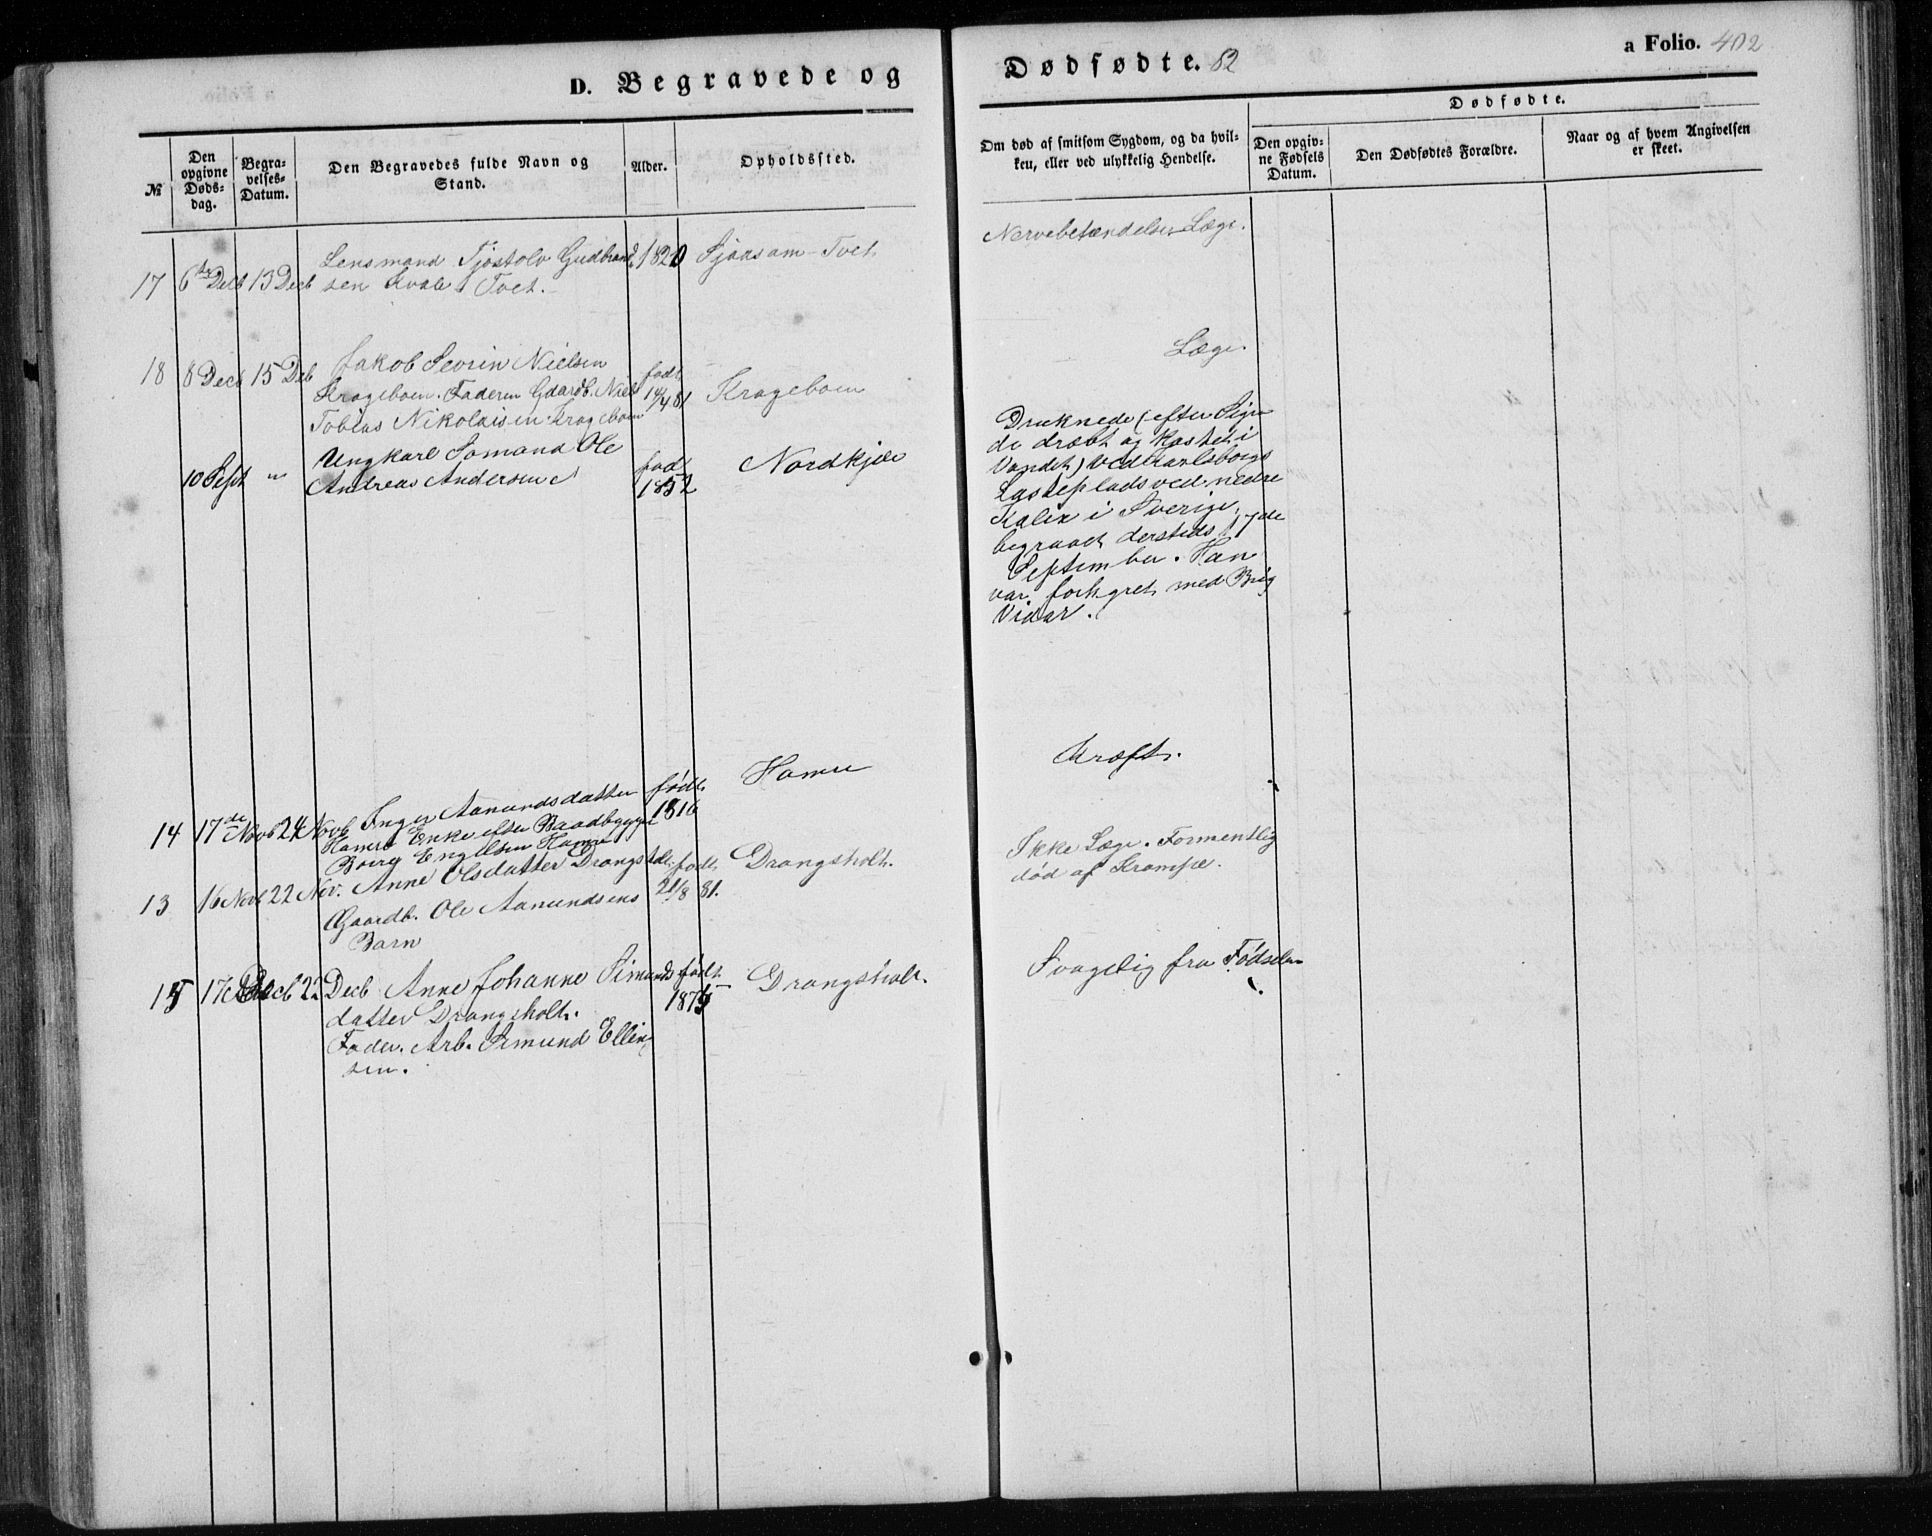 D. Begravede og
Dødfødte. 82
a Folio. 402
№
Den opgivne Døds-dag.
Begra-velses-Datum.
Den Begravedes fulde Navn og Stand.
Alder.
Opholdssted.
Om død af smitsom Sygdom, og da hvil-
ken, eller ved ulykkelig Hendelse.
Dødfødte.
Den opgiv-ne Fødsels Datum.
Den Dødfødtes Forældre.
Naar og af hvem Angivelsen er skeet.
17 6te Decb 13 Decb
Lensmand Tjøstolv Gudbrand
sen Kvale Tvet.
1820
Tvet
Nervebetændelse. Læge.
18 8 Decb 15 Dcb
Jakob Sevrin Nielsen
Krageboen. Faderen Gaardb. Niels
Tobias Nikolaisen Krageboen
født
14/4 81
Krageboen
Læge.
10 Sept "
Ungkarl Sømand Ole
Andreas Andersen
fød
1852
Nordkjær
Druknede (efter Sigen
de dræbt og kastet i
Vandet) ved Karlsborgs
Lasteplads ved nedre
Kalix i Sverige,
begravet dersteds 17de
September. Han
var forhyret med Brig
Vidar.
14 17de Novb 24 Novb
Inger Aanundsdatter
Hamre Enke efter Baadbygger
Boerg Engelsen Hamre
født
1816
Hamre
Kræft.
13 16 Novb 22 Nov.
Anne Olsdatter Drangsholt
Gaardb. Ole Aanundsens
Barn
født
21/8 81.
Drangsholt.
Ikke Læge. Formentlig
død af Krampe.
15 17 Decb 22 Decb
Anne Johanne Simunds
datter Drangsholt.
Fader. Arb. Simund Ellin
sen.
født
1875
Drangsholt.
Svagelig fra Fødselen